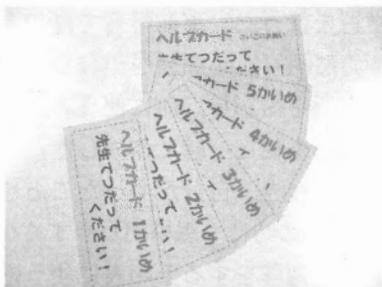 ヘルプカード さいごのお願い
先生てつだって
ください！
ヘルプカード 5かいめ
カード 4かいめ
ヘルプカード 3かいめ
ヘルプカード 2かいめ
てつだって
ヘルプカード 1かいめ
先生てつだって
ください！